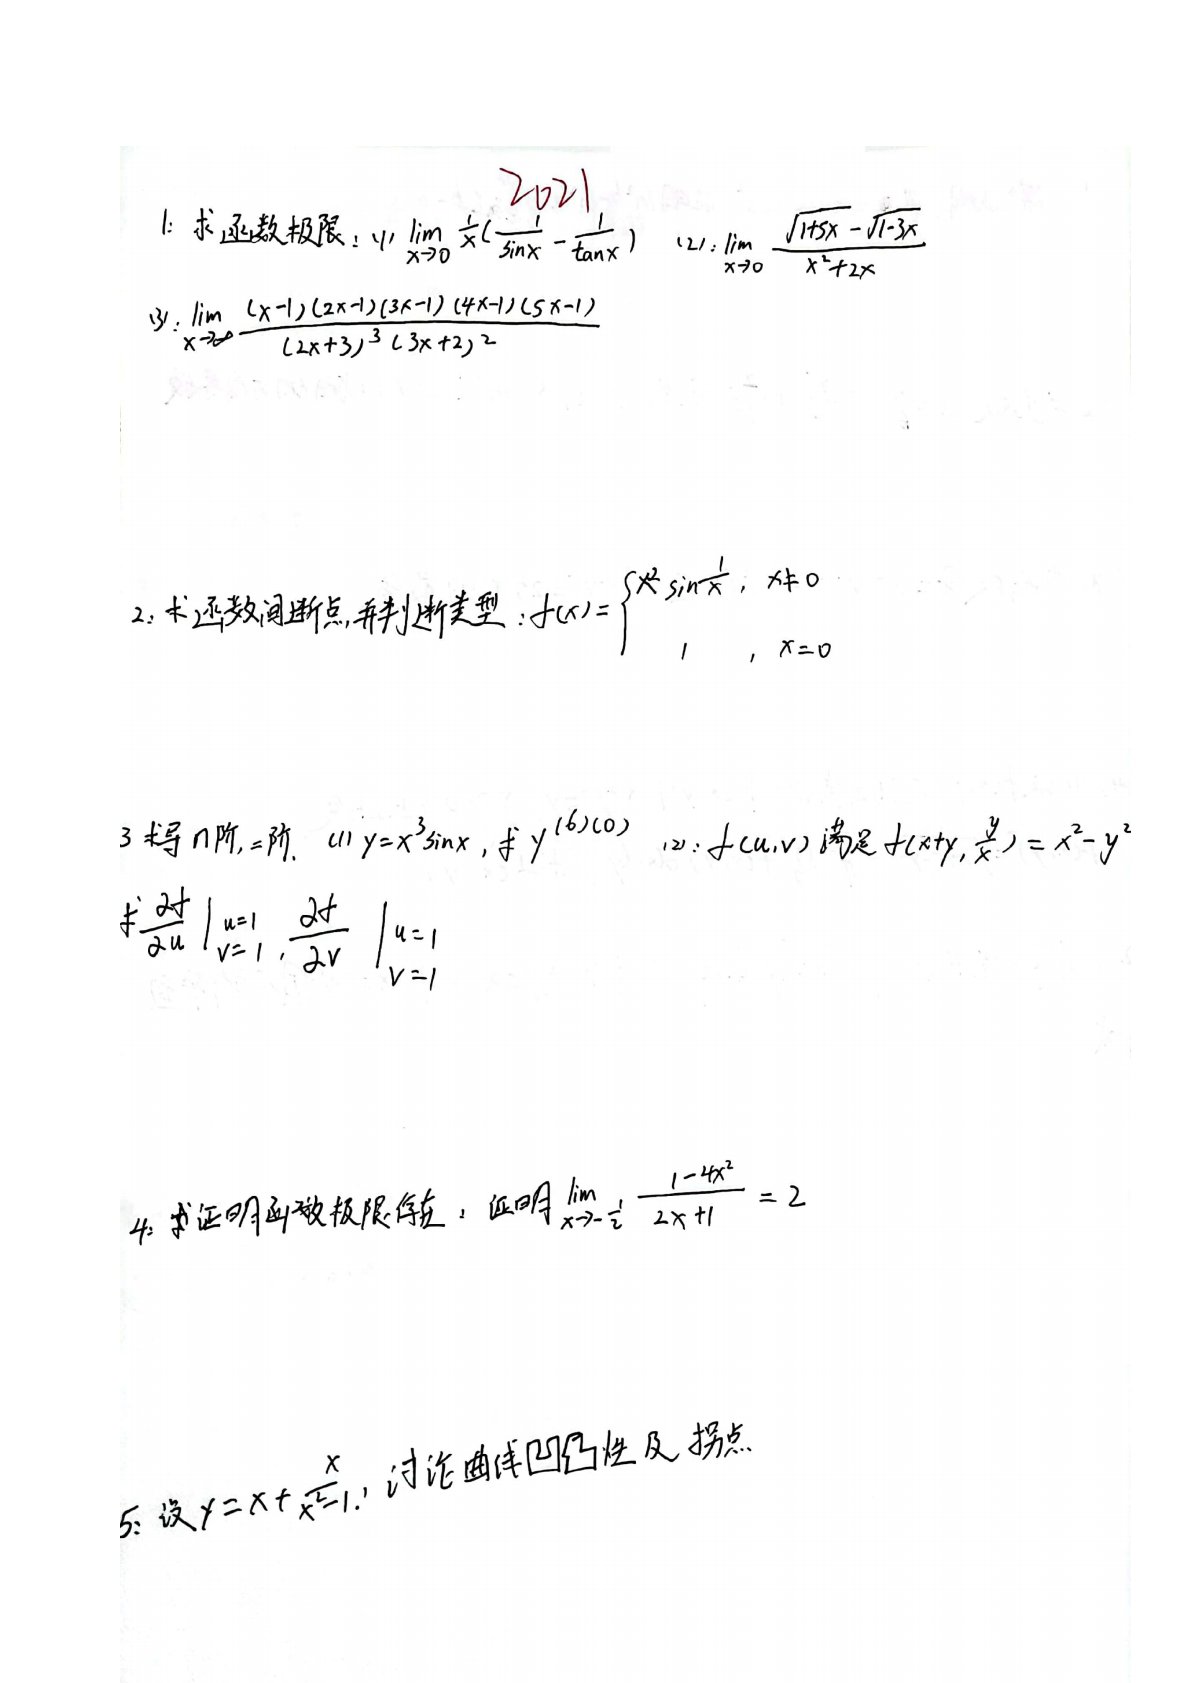 2021
1: 求函数极限: (1) lim x→0 1/x (1/sinx - 1/tanx) (2): lim x→0 (√(1+5x) - √(1-3x))/(x²+2x)
(3): lim x→∞ (x-1)(2x-1)(3x-1)(4x-1)(5x-1)/((2x+3)³(3x+2)²)
2: 求函数间断点,并判断类型: f(x) = { x² sin 1/x, x≠0
1, x=0
3 求导n阶,二阶. (1) y=x³sinx, 求 y^(6)(0) (2): f(u,v) 满足 f(x+y, y/x) = x²-y²
求 ∂f/∂u | u=1 v=1, ∂f/∂v | u=1 v=1
4: 求证明函数极限存在: 证明 lim x→-1/2 (1-4x²)/(2x+1) = 2
5: 设 y = x + x/(x²-1), 讨论曲线凹凸性及拐点